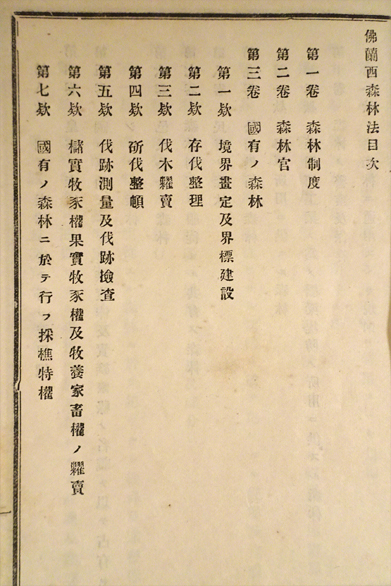 佛蘭西森林法目次
第一卷 森林制度
第二卷 森林官
第三卷 國有ノ森林
第一欵 境界畫定及界標建設
第二欵 存伐整理
第三欵 伐木糶賣
第四欵 斫伐整頓
第五欵 伐跡測量及伐跡撿査
第六欵 櫧實牧豕權果實牧豕權及牧養家畜權ノ糶賣
第七欵 國有ノ森林ニ於テ行フ採樵特權